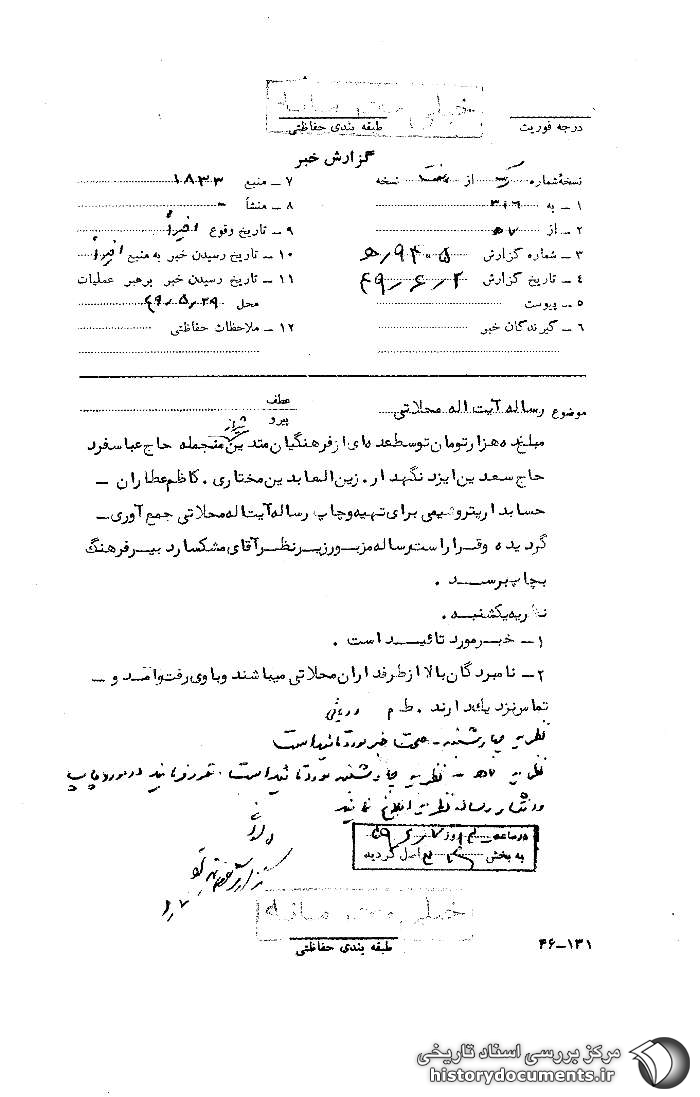 خیلی محرمانه
درجه فوریت
طبقه بندی حفاظتی
گزارش خبر
نسخهٔ شماره از نسخه
۱ ـ به ۳۱۶
۲ ـ از ۷ھ
۳ ـ شماره گزارش ۹۴۰۵/ھ
۴ ـ تاریخ گزارش ۴۹/۶/۲
۵ ـ پیوست
۶ ـ گیرندگان خبر
۷ ـ منبع ۱۸۳۳
۸ ـ منشأ ـ
۹ ـ تاریخ وقوع اخیراً
۱۰ ـ تاریخ رسیدن خبر به منبع اخیراً
۱۱ ـ تاریخ رسیدن خبر برهبر عملیات
محل ۴۹/۵/۲۹
۱۲ ـ ملاحظات حفاظتی
موضوع رساله آیت اله محلاتی
عطف
پیرو
شیراز
مبلغ ده هزار تومان توسط عده ای از فرهنگیان متدین منجمله حاج عباسفرد
حاج سعدین ایزد نگهدار . زین العابدین مختاری . کاظم عطاران ـ
حسابدار پتروشیمی برای تهیه و چاپ رساله آیت اله محلاتی جمع آوری ـ
گردیده وقرار است رساله مزبور زیر نظر آقای مشکسار دبیر فرهنگ
بچاپ برسد .
نظریه یکشنبه .
۱ ـ خبر مورد تائید است .
۲ ـ نامبردگان بالا از طرفداران محلاتی میباشند و با وی رفت و آمد و ـ
تماس نزدیک دارند . ط م
نظریه چهارشنبه ـ صحت خبر مورد تائید است
نظریه ۷ھ ـ نظریه چهارشنبه مورد تائید است . مقرر فرمایند در مورد چاپ
و انتشار رساله نظریه اعلام نمایند
در ساعت روز ۴۹/۶/۷
به بخش واصل گردید
۶/۷
خیلی محرمانه
طبقه بندی حفاظتی
۴۶ـ۱۳۱
مرکز بررسی اسناد تاریخی
historydocuments.ir